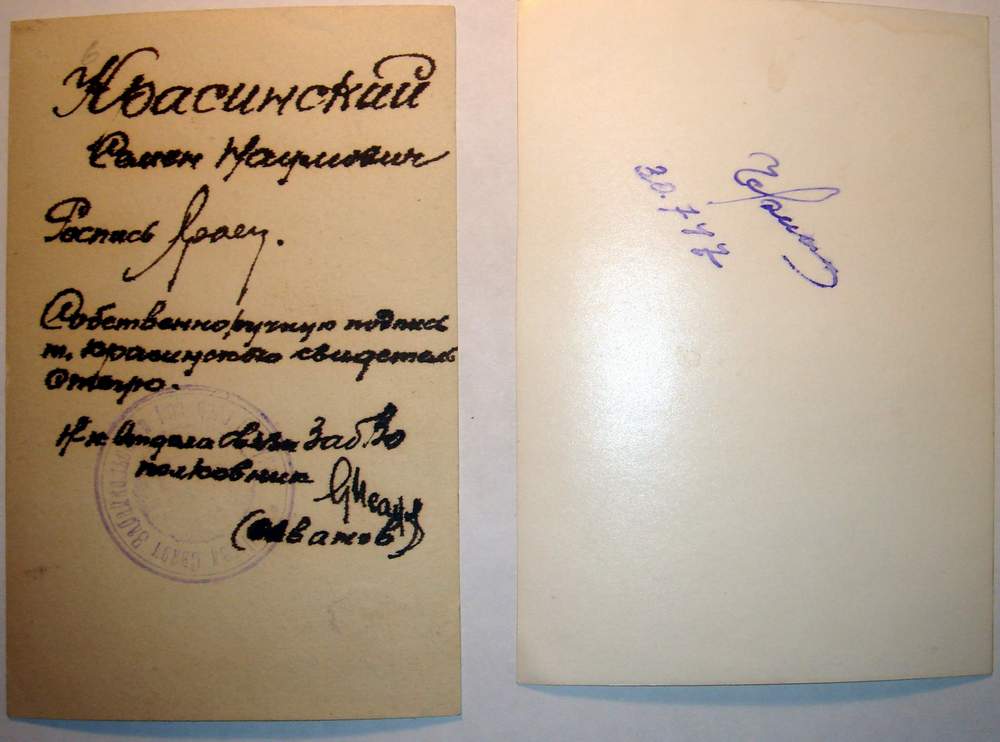 Красинский
Семен Наумович
Роспись Крас.
Собственноручную подпись
т. Красинского свидетель
ствую.
Н-к Отдела Связи ЗабВО
полковник
(Иванов)
30.7.47